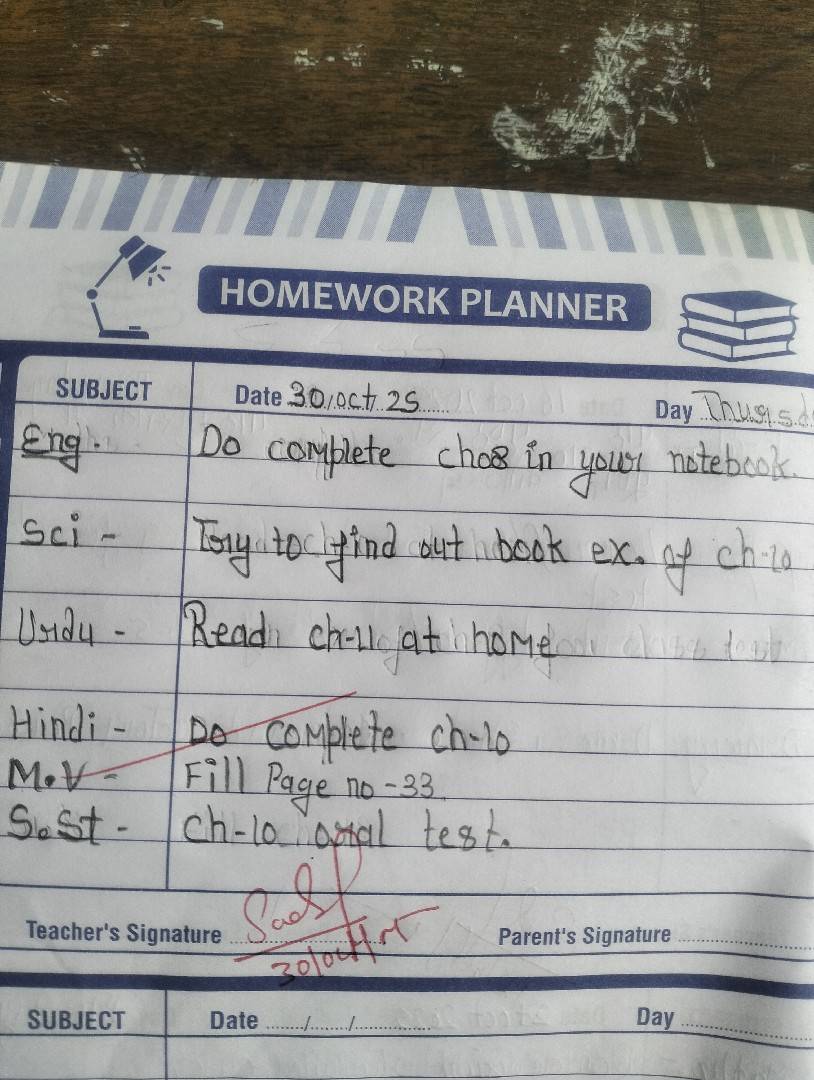 HOMEWORK PLANNER
SUBJECT Date 30/oct/25 Day Thursd
Eng. Do complete ch08 in your notebook.
Sci - Try to find out book ex. of ch-10
Urdu - Read ch-11 at home
Hindi - Do complete ch-10
M.V - Fill Page no - 33
S.St - ch-10 oral test.
Teacher's Signature Parent's Signature
30/oct
SUBJECT Date ....../....../...... Day